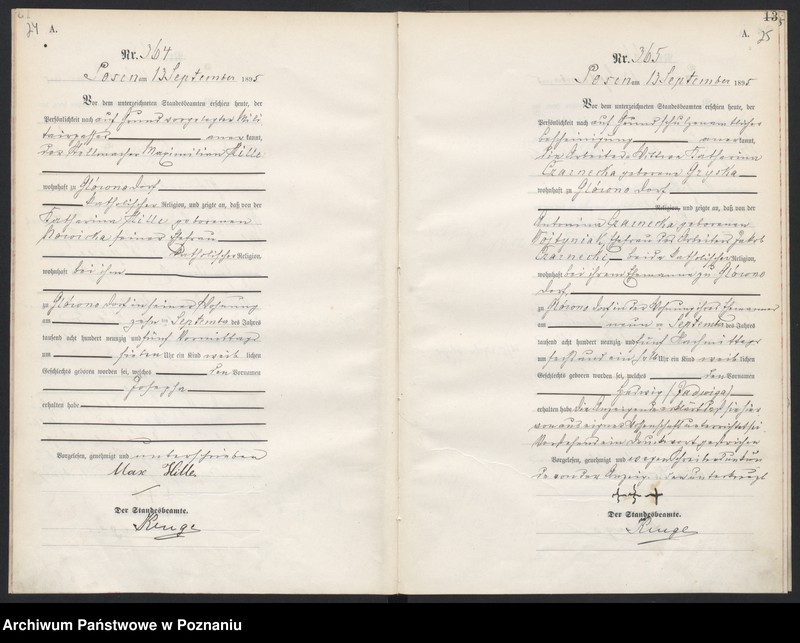 24 A.
Nr. 364
Posen am 13 September 1895
Vor dem unterzeichneten Standesbeamten erschien heute, der
Persönlichkeit nach auf Grund vorgelegter Mili
tairpasses anerkannt,
der Stellmacher Maximilian Hille
wohnhaft zu Glówno Dorf
katholischer Religion, und zeigte an, daß von der
Katharina Hille geborenen
Nowicka seiner Ehefrau
katholischer Religion,
wohnhaft bei ihm
zu Glówno Dorf in seiner Wohnung
am zehn ten September des Jahres
tausend acht hundert neunzig und fünf Vormittags
um sieben Uhr ein Kind weiblichen
Geschlechts geboren worden sei, welches den Vornamen
Josepha
erhalten habe
Vorgelesen, genehmigt und unterschrieben
Max Hille
Der Standesbeamte.
Runge
13
A. 25
Nr. 365
Posen am 13 September 1895
Vor dem unterzeichneten Standesbeamten erschien heute, der
Persönlichkeit nach auf Grund schulzenamtlicher
Bescheinigung anerkannt,
die Arbeiter Wittwe Katharina
Czarnecka geborene Grycka
wohnhaft zu Glówno Dorf
Religion, und zeigte an, daß von der
Antonina Czarnecka geborenen
Wojtyniak, Ehefrau des Arbeiters Jakob
Czarnecki beide katholischer Religion,
wohnhaft bei ihrem Ehemanne zu Glówno
Dorf
zu Glówno Dorf in der Wohnung ihres Ehemannes
am neun ten September des Jahres
tausend acht hundert neunzig und fünf Nachmittags
um sechs und ein halb Uhr ein Kind weiblichen
Geschlechts geboren worden sei, welches den Vornamen
Hedwig (Jadwiga)
erhalten habe. Die Anzeigende erklärt daß sie hier
von aus eigner Wissenschaft unterrichtet sei
Vorstehend ein Druckwort gestrichen
Vorgelesen, genehmigt und wegen Schreibensunkun
de von der Anzeigenden unterkreuzt
+++
Der Standesbeamte.
Runge
Archiwum Państwowe w Poznaniu